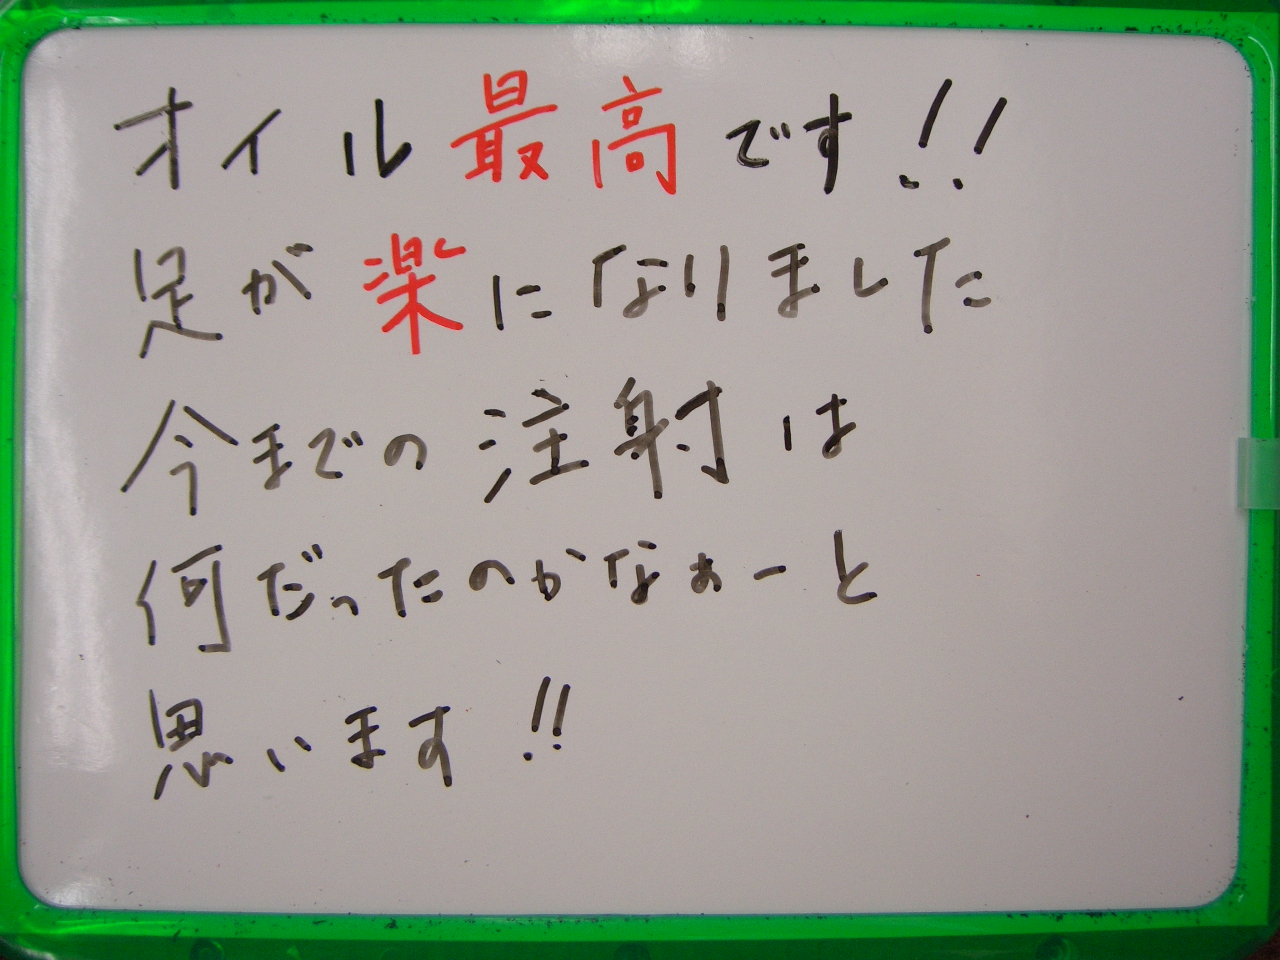 オイル最高です!!
足が楽になりました
今までの注射は
何だったのかなぁーと
思います!!